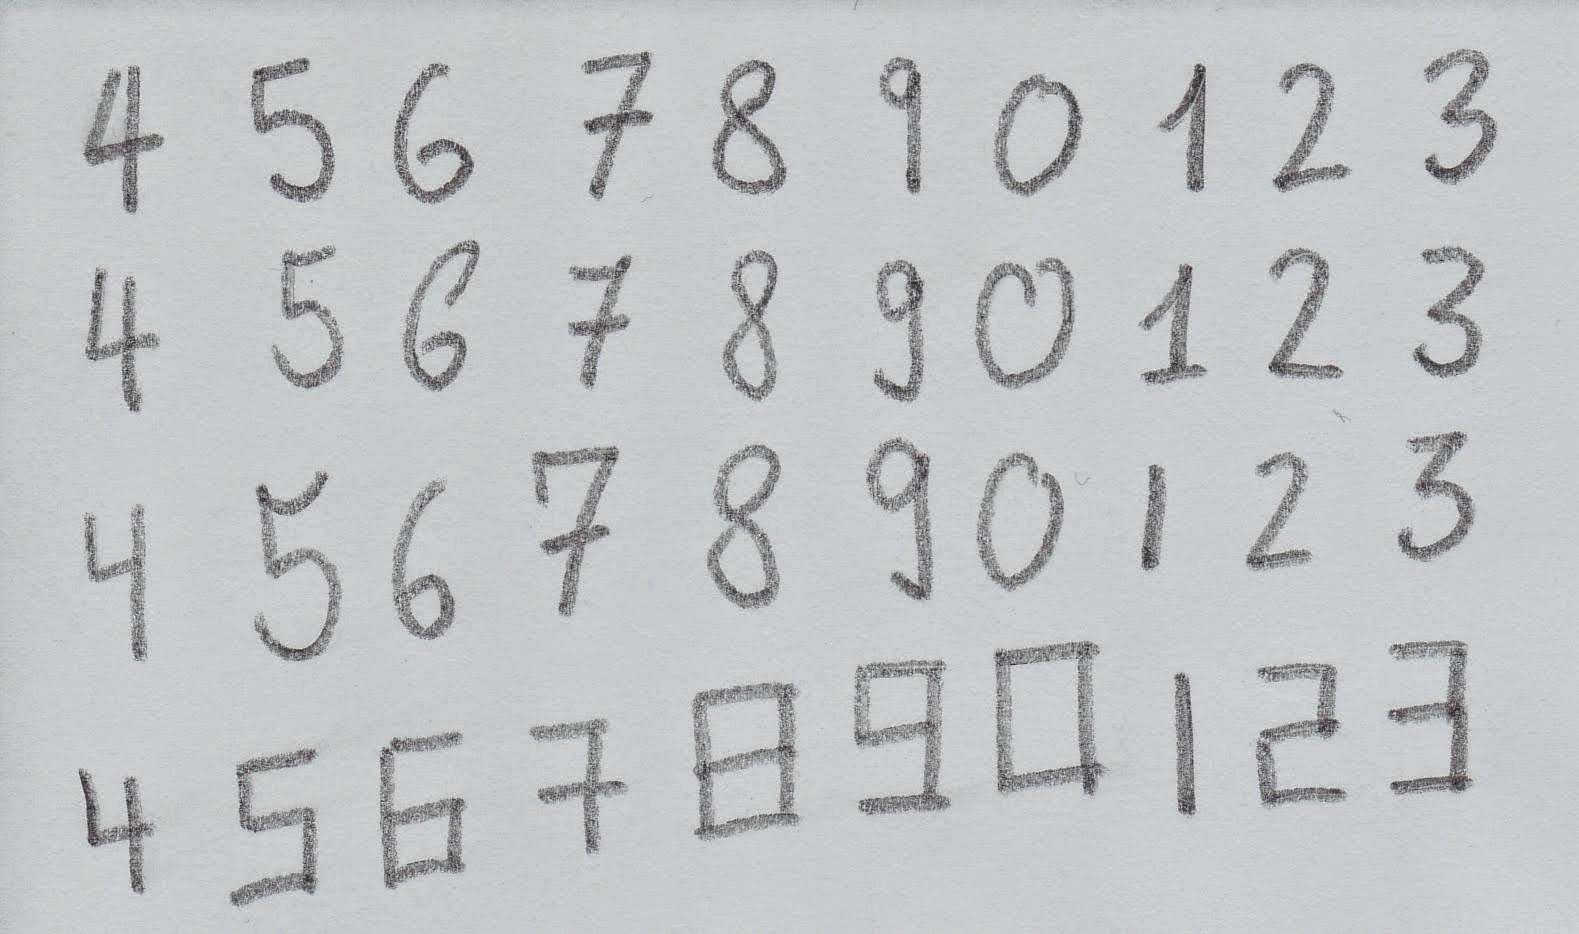 4 5 6 7 8 9 0 1 2 3
4 5 6 7 8 9 0 1 2 3
4 5 6 7 8 9 0 1 2 3
4 5 6 7 8 9 0 1 2 3